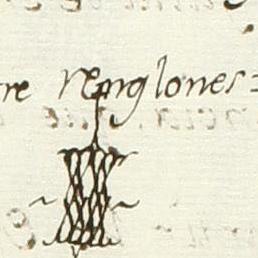 re renglones=